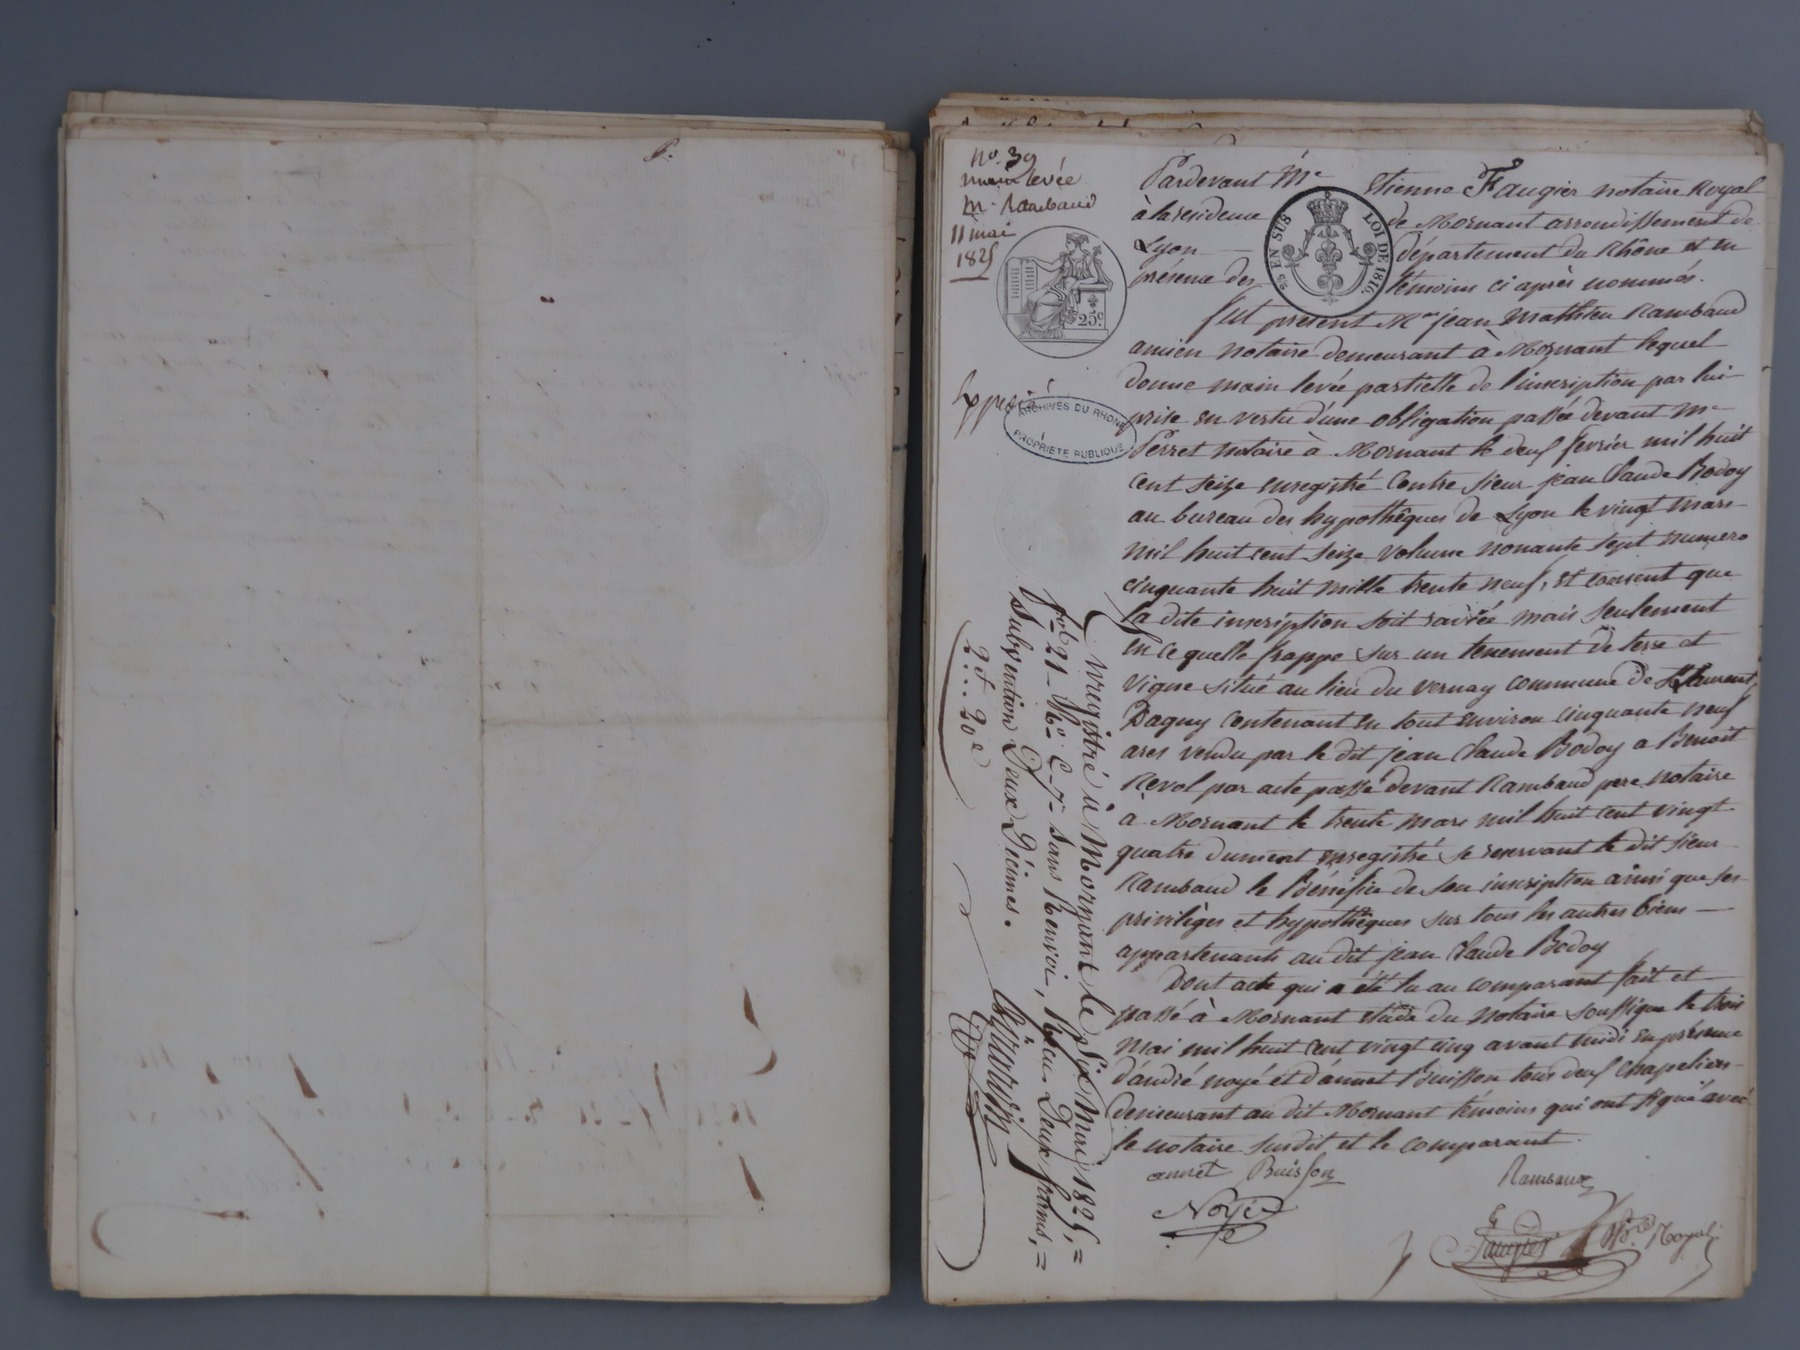 No. 39
main levée
M. Rambaud
11 mai
1825
25c.
25 EN SUS
LOI DE 1816.
ARCHIVES DU RHONE
PROPRIÉTÉ PUBLIQUE
Pardevant Me Etienne Faugier notaire Royal
à la residence de Mornant arrondissement de
Lyon département du Rhône et en
présence des témoins ci après nommés.
fut présent Me jean Mathieu Rambaud
ancien notaire demeurant à Mornant lequel
donne main levée partielle de l'inscription par lui
prise en vertu d'une obligation passée devant Me
Perret notaire à Mornant le deux fevrier mil huit
cent seize enregistré Contre sieur jean Claude Bodoy
au bureau des hypothêques de Lyon le vingt mars
mil huit cent seize volume nonante sept numero
cinquante huit mille trente neuf, et consent que
la dite inscription soit raviée mais seulement
En ce quelle frappe sur un tenement de terre et
vigne situé au lieu du vernay commune de St Laurent
Dagny contenant en tout environ cinquante neuf
ares vendu par le dit jean Claude Bodoy a Benoit
Revol par acte passé devant Rambaud pere notaire
à Mornant le trente mars mil huit cent vingt
quatre dument enregistré se reservant le dit sieur
Rambaud le Bénéfice de son inscription ainsi que ses
privilèges et hypothêques sur tous les autres biens
appartenants au dit jean Claude Bodoy
Dont acte qui a été lu au comparant fait et
passé à Mornant etude du Notaire soussigné le trois
Mai mil huit cent vingt cinq avant midi en présence
d'andré noyé et d'annet Buisson tous deux chapeliers
demeurant au dit Mornant témoins qui ont signé avec
le notaire susdit et le comparant.
annet Buisson
Rambaud
Noyé
Faugier
Nre Royal
Enregistré à Mornant le Six Mai 1825,=
fol 21 Ro C. 7e sans Renvoi, Reçu Deux francs,=
Subvention Deux Décimes.
2f. 20c